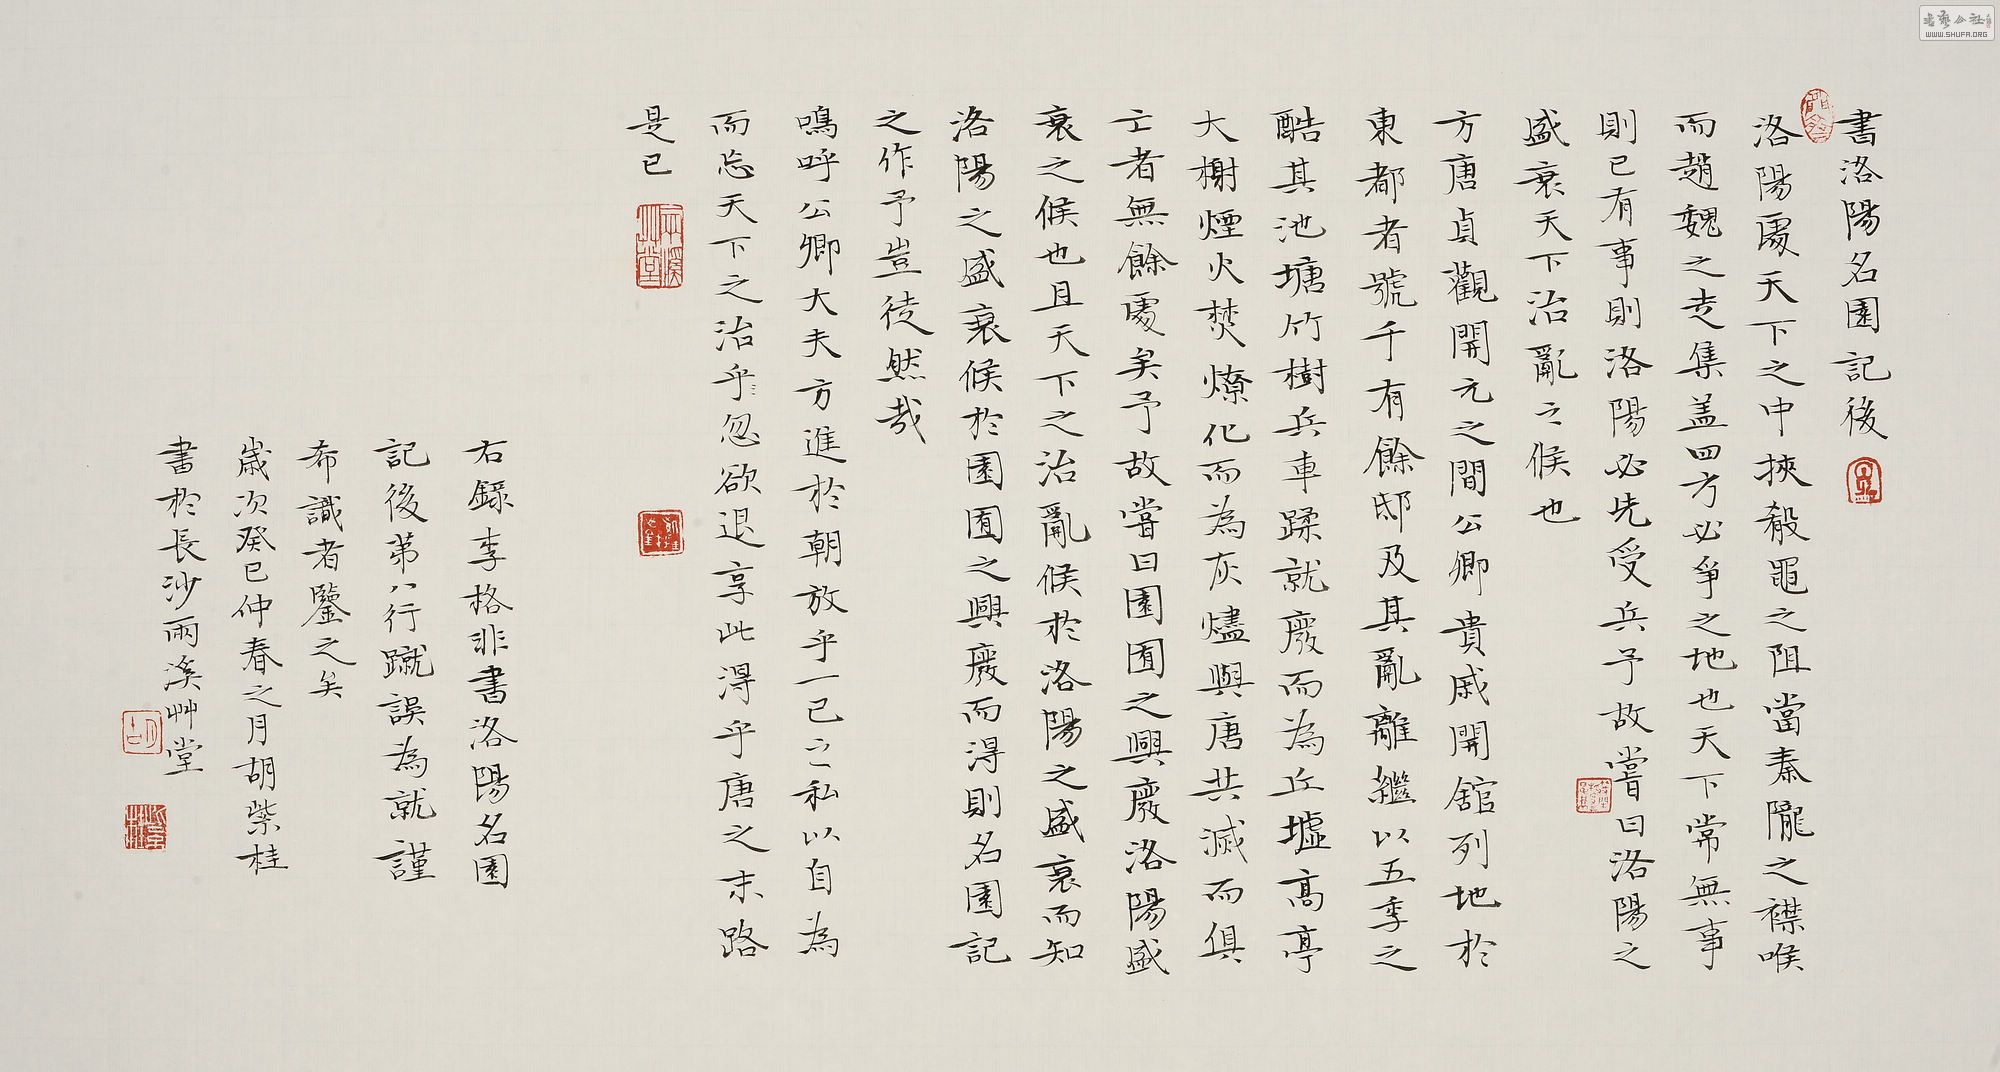 書洛陽名園記後
洛陽處天下之中挾殽黽之阻當秦隴之襟喉
而趙魏之走集盖四方必爭之地也天下常無事
則已有事則洛陽必先受兵予故嘗曰洛陽之
盛衰天下治亂之候也
方唐貞觀開元之間公卿貴戚開舘列地於
東都者號千有餘邸及其亂離繼以五季之
酷其池塘竹樹兵車蹂就廢而為丘墟高亭
大榭煙火焚燎化而為灰燼與唐共滅而俱
亡者無餘處矣予故嘗曰園囿之興廢洛陽盛
衰之候也且天下之治亂候於洛陽之盛衰而知
洛陽之盛衰候於園囿之興廢而得則名園記
之作予豈徒然哉
鳴呼公卿大夫方進於朝放乎一己之私以自為
而忘天下之治乎忽欲退享此得乎唐之末路
是已
右錄李格非書洛陽名園
記後第八行蹴誤為就謹
希識者鑒之矣
歲次癸巳仲春之月胡紫桂
書於長沙兩溪艸堂
書藝公社
WWW.SHUFA.ORG